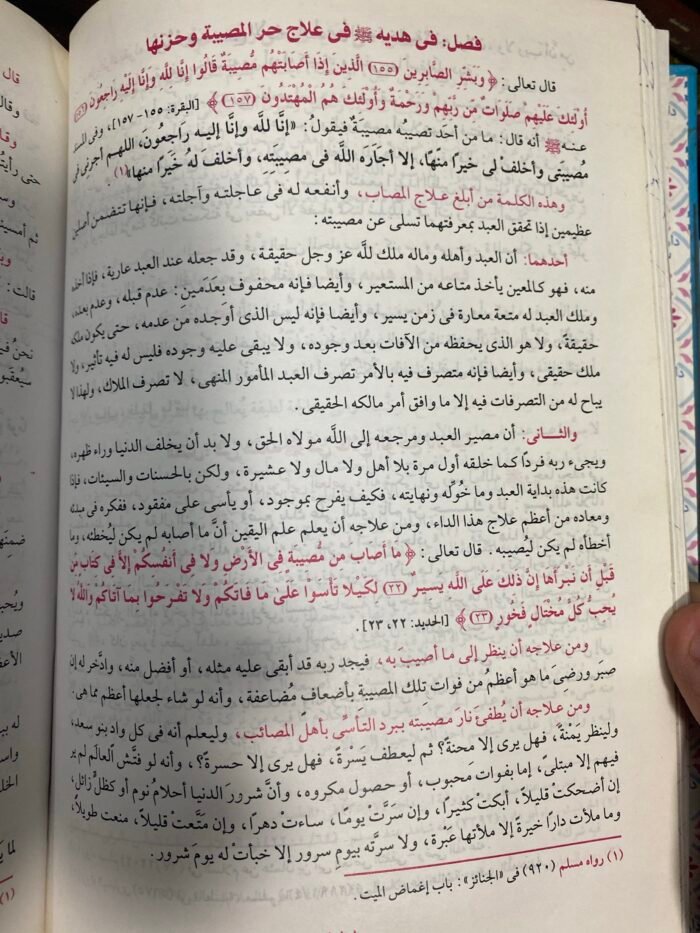 فصل: فى هديه ﷺ فى علاج حر المصيبة وحزنها
قال تعالى: ﴿وَبَشِّرِ الصَّابِرِينَ (١٥٥) الَّذِينَ إِذَا أَصَابَتْهُم مُّصِيبَةٌ قَالُوا إِنَّا لِلَّهِ وَإِنَّا إِلَيْهِ رَاجِعُونَ (١٥٦)
أُوْلَئِكَ عَلَيْهِمْ صَلَوَاتٌ مِّن رَّبِّهِمْ وَرَحْمَةٌ وَأُوْلَئِكَ هُمُ الْمُهْتَدُونَ (١٥٧)﴾ [البقرة: ١٥٥ - ١٥٧]، وفى المسند
عنه ﷺ أنه قال: ما من أحد تصيبُه مصيبةٌ فيقولُ: «إنَّا لله وإنَّا إليه رَاجعُونَ، اللهم أجرنى فى
مُصيبَتى وأخلفْ لى خيرًا منْهَا، إلا أجَارَه اللَّه فى مصِيبَتِهِ، وأخلف لهُ خَيرًا منها»(١).
وهذه الكلمة من أبلغ علاج المصاب، وأنفعه له فى عاجلته وآجلته، فإنها تتضمن أصلين
عظيمين إذا تحقق العبد بمعرفتهما تسلى عن مصيبته:
أحدهما: أن العبد وأهله وماله ملك للَّه عز وجل حقيقة، وقد جعله عند العبد عارية، فإذا أخذه
منه، فهو كالمعين يأخذ متاعه من المستعير، وأيضا فإنه محفوف بعَدَمَينِ: عدم قبله، وعدم بعده،
وملك العبد له متعة معارة فى زمن يسير، وأيضا فإنه ليس الذى أوجَده من عدمه، حتى يكون ملكه
حقيقةً، ولا هو الذى يحفظه من الآفات بعد وجوده، ولا يبقى عليه وجوده فليس له فيه تأثير، ولا
ملك حقيقى، وأيضا فإنه متصرف فيه بالأمر تصرف العبد المأمور المنهى، لا تصرف الملاك، ولهذا لا
يباح له من التصرفات فيه إلا ما وافق أمر مالكه الحقيقى.
والثانى: أن مصير العبد ومرجعه إلى اللَّه مولاه الحق، ولا بد أن يخلف الدنيا وراء ظهره،
ويجىء ربه فردًا كما خلقه أول مرة بلا أهل ولا مال ولا عشيرة، ولكن بالحسنات والسيئات، فإذا
كانت هذه بداية العبد وما خُوِّله ونهايته، فكيف يفرح بموجود، أو يأسى على مفقود، ففكره فى مبدئه
ومعاده من أعظم علاج هذا الداء، ومن علاجه أن يعلم علم اليقين أنَّ ما أصابه لم يكن ليُخطئه، وما
أخطأه لم يكن ليُصيبه. قال تعالى: ﴿مَا أَصَابَ مِن مُّصِيبَةٍ فِى الأَرْضِ وَلا فِى أَنفُسِكُمْ إِلاَّ فِى كِتَابٍ مِّن
قَبْلِ أَن نَّبْرَأَهَا إِنَّ ذَلِكَ عَلَى اللَّهِ يَسِيرٌ (٢٢) لِكَيْلا تَأْسَوْا عَلَىٰ مَا فَاتَكُمْ وَلا تَفْرَحُوا بِمَا آتَاكُمْ وَاللَّهُ لا
يُحِبُّ كُلَّ مُخْتَالٍ فَخُورٍ (٢٣)﴾ [الحديد: ٢٢، ٢٣].
ومن علاجه أن ينظر إلى ما أصيبَ به، فيجد ربه قد أبقى عليه مثله، أو أفضل منه، وادَّخر له إن
صبَر ورضِىَ ما هو أعظمُ من فوات تِلكَ المصيبة بأضعاف مُضاعفة، وأنه لو شاء لجعلها أعظم مما هى.
ومن علاجه أن يُطفئَ نارَ مصيبته ببرد التأسِّى بأهلِّ المصائب، وليعلم أنه فى كل واد بنو سعد،
ولينظر يَمْنةً، فهل يرى إلا محنةً؟ ثم ليعطف يَسْرةً، فهل يرى إلا حسرةً؟، وأنه لو فتَّش العالَم لم ير
فيهم إلا مبتلىً، إما بفوات مَحبوب، أو حصول مكروه، وأنَّ شرورَ الدنيا أحلامُ نوم أو كظلٍّ زائل،
إن أضحكتْ قليلاً، أبكتْ كثيرًا، وإن سَرَّتْ يومًا، ساءتْ دهرًا، وإن مَتَّعت قليلاً، منعت طويلاً،
وما ملأت دارًا خيرةً إلا ملأتها عَبْرة، ولا سرَّته بيومِ سرور إلا خبأتْ له يومَ شرور.
(١) رواه مسلم (٩٢٠) فى «الجنائز»: باب إغماض الميت.